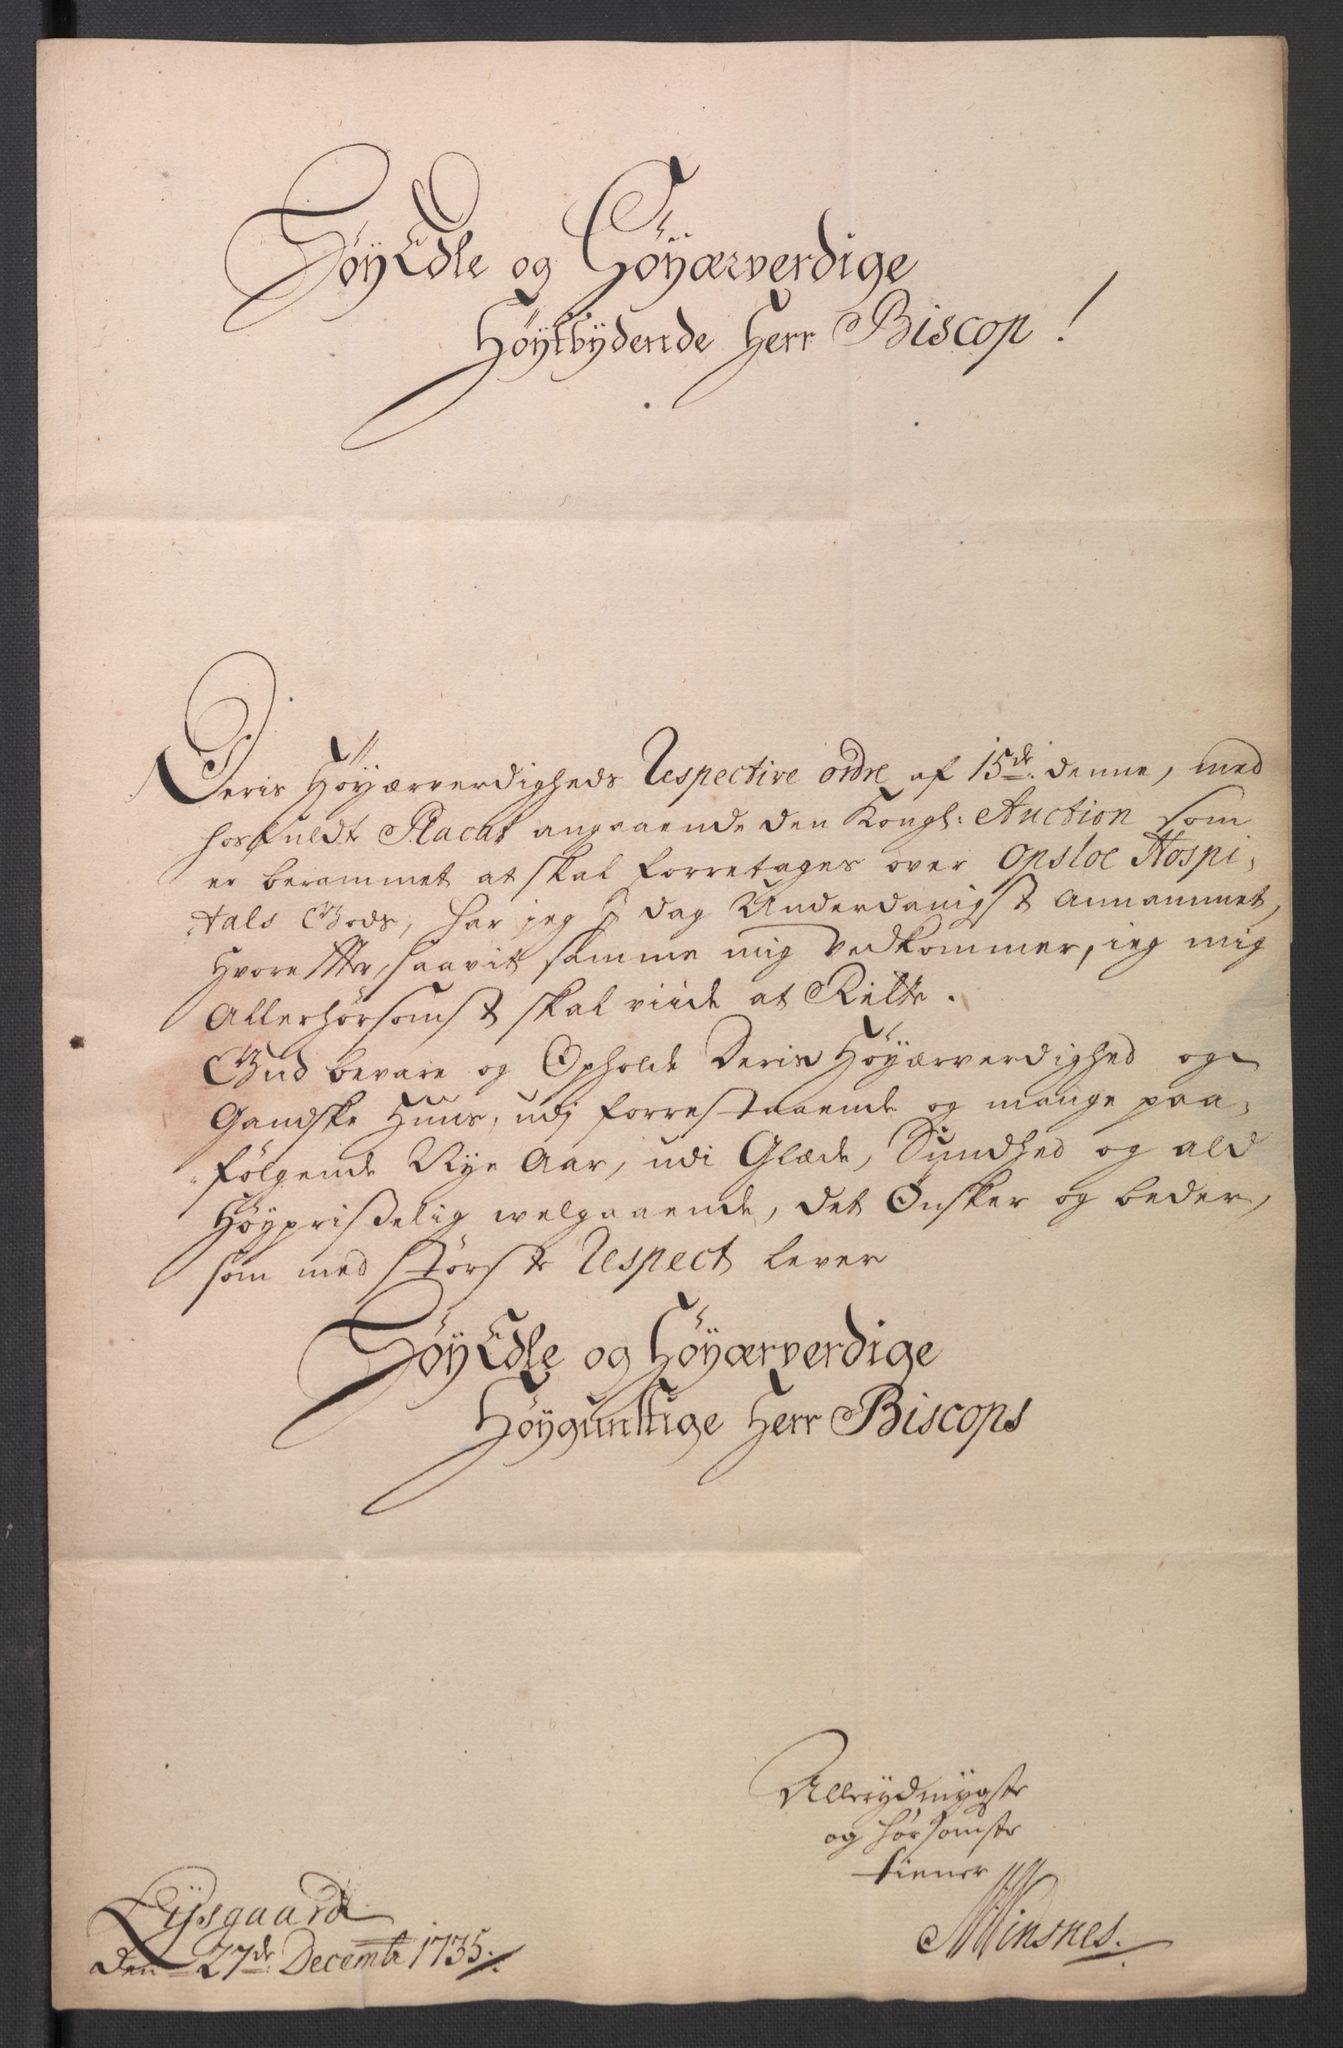 HøyEdle og Høyærverdige
Høytbydende Herr Biscop!
Deris Høyærverdigheds Respective ordre af 15de: denne, med
hosfuldt Placat angaaende den Kongl: Auction som
er berammet at skal forretages over Opsloe Hospi,
tals Gods, har jeg i dag Underdanigst annammet,
Hvorefter, saavit samme mig vedkommer, jeg mig
Allerhørsomst skal viide at Rette.
Gud bevare og Opholde Deris Høyærverdighed og
Gandske Huus, udj forrestaaende og mange paa,
følgende Nye Aar, udi Glæde, Sundhed og ald
Høyprisselig welgaaende, det Ønsker og beder,
som med største Respect lever
HøyEdle og Høyærverdige
Høygunstige Herr Biscops
Allerydmygste
og hørsomste
tiener
Minsnes.
Lysgaard
den 27de: Decembr 1735.